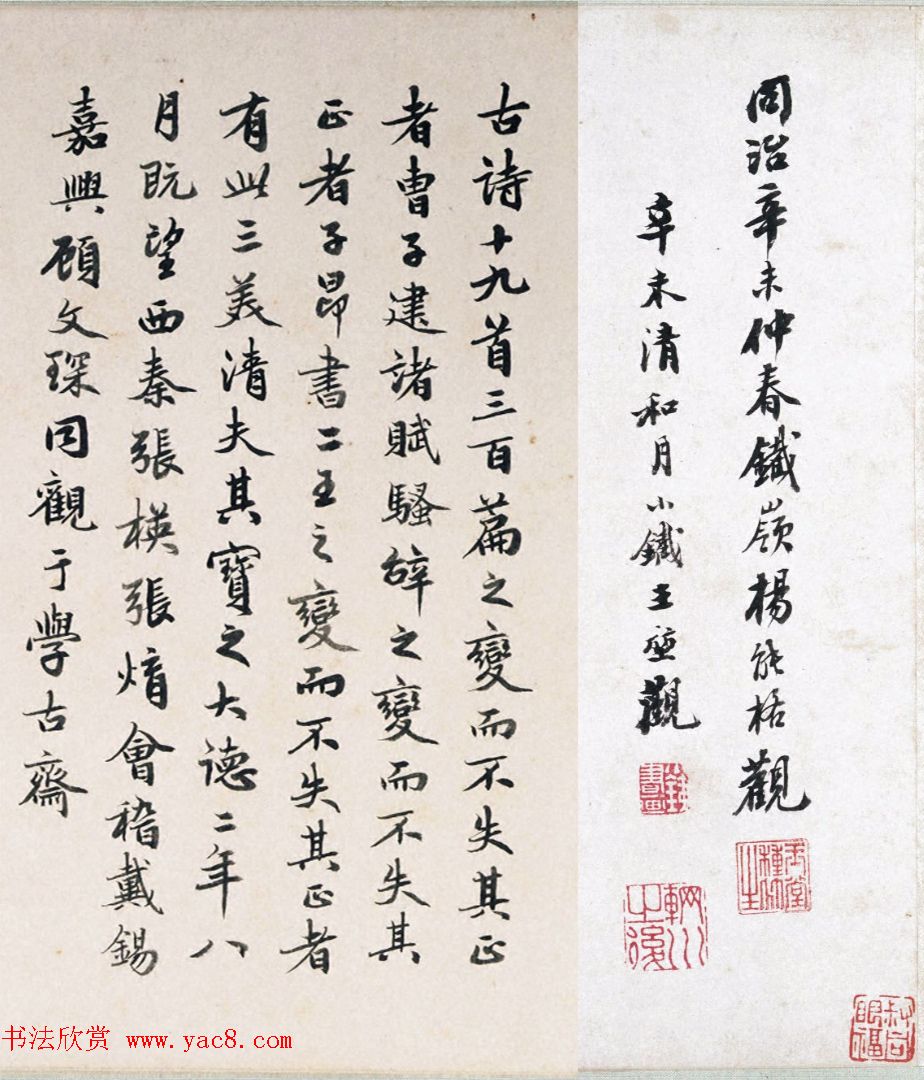 同治辛未仲春鐵嶺楊能格觀
辛未清和月小鐵王觀
輞川之後
古詩十九首三百篇之變而不失其正
者曹子建諸賦騷辞之變而不失其
正者子昂書二王之變而不失其正者
有此三美清夫其寶之大德二年八
月既望西秦張楧張焴會稽戴錫
嘉興顧文琛同觀于學古齋
书法欣赏 www.yac8.com